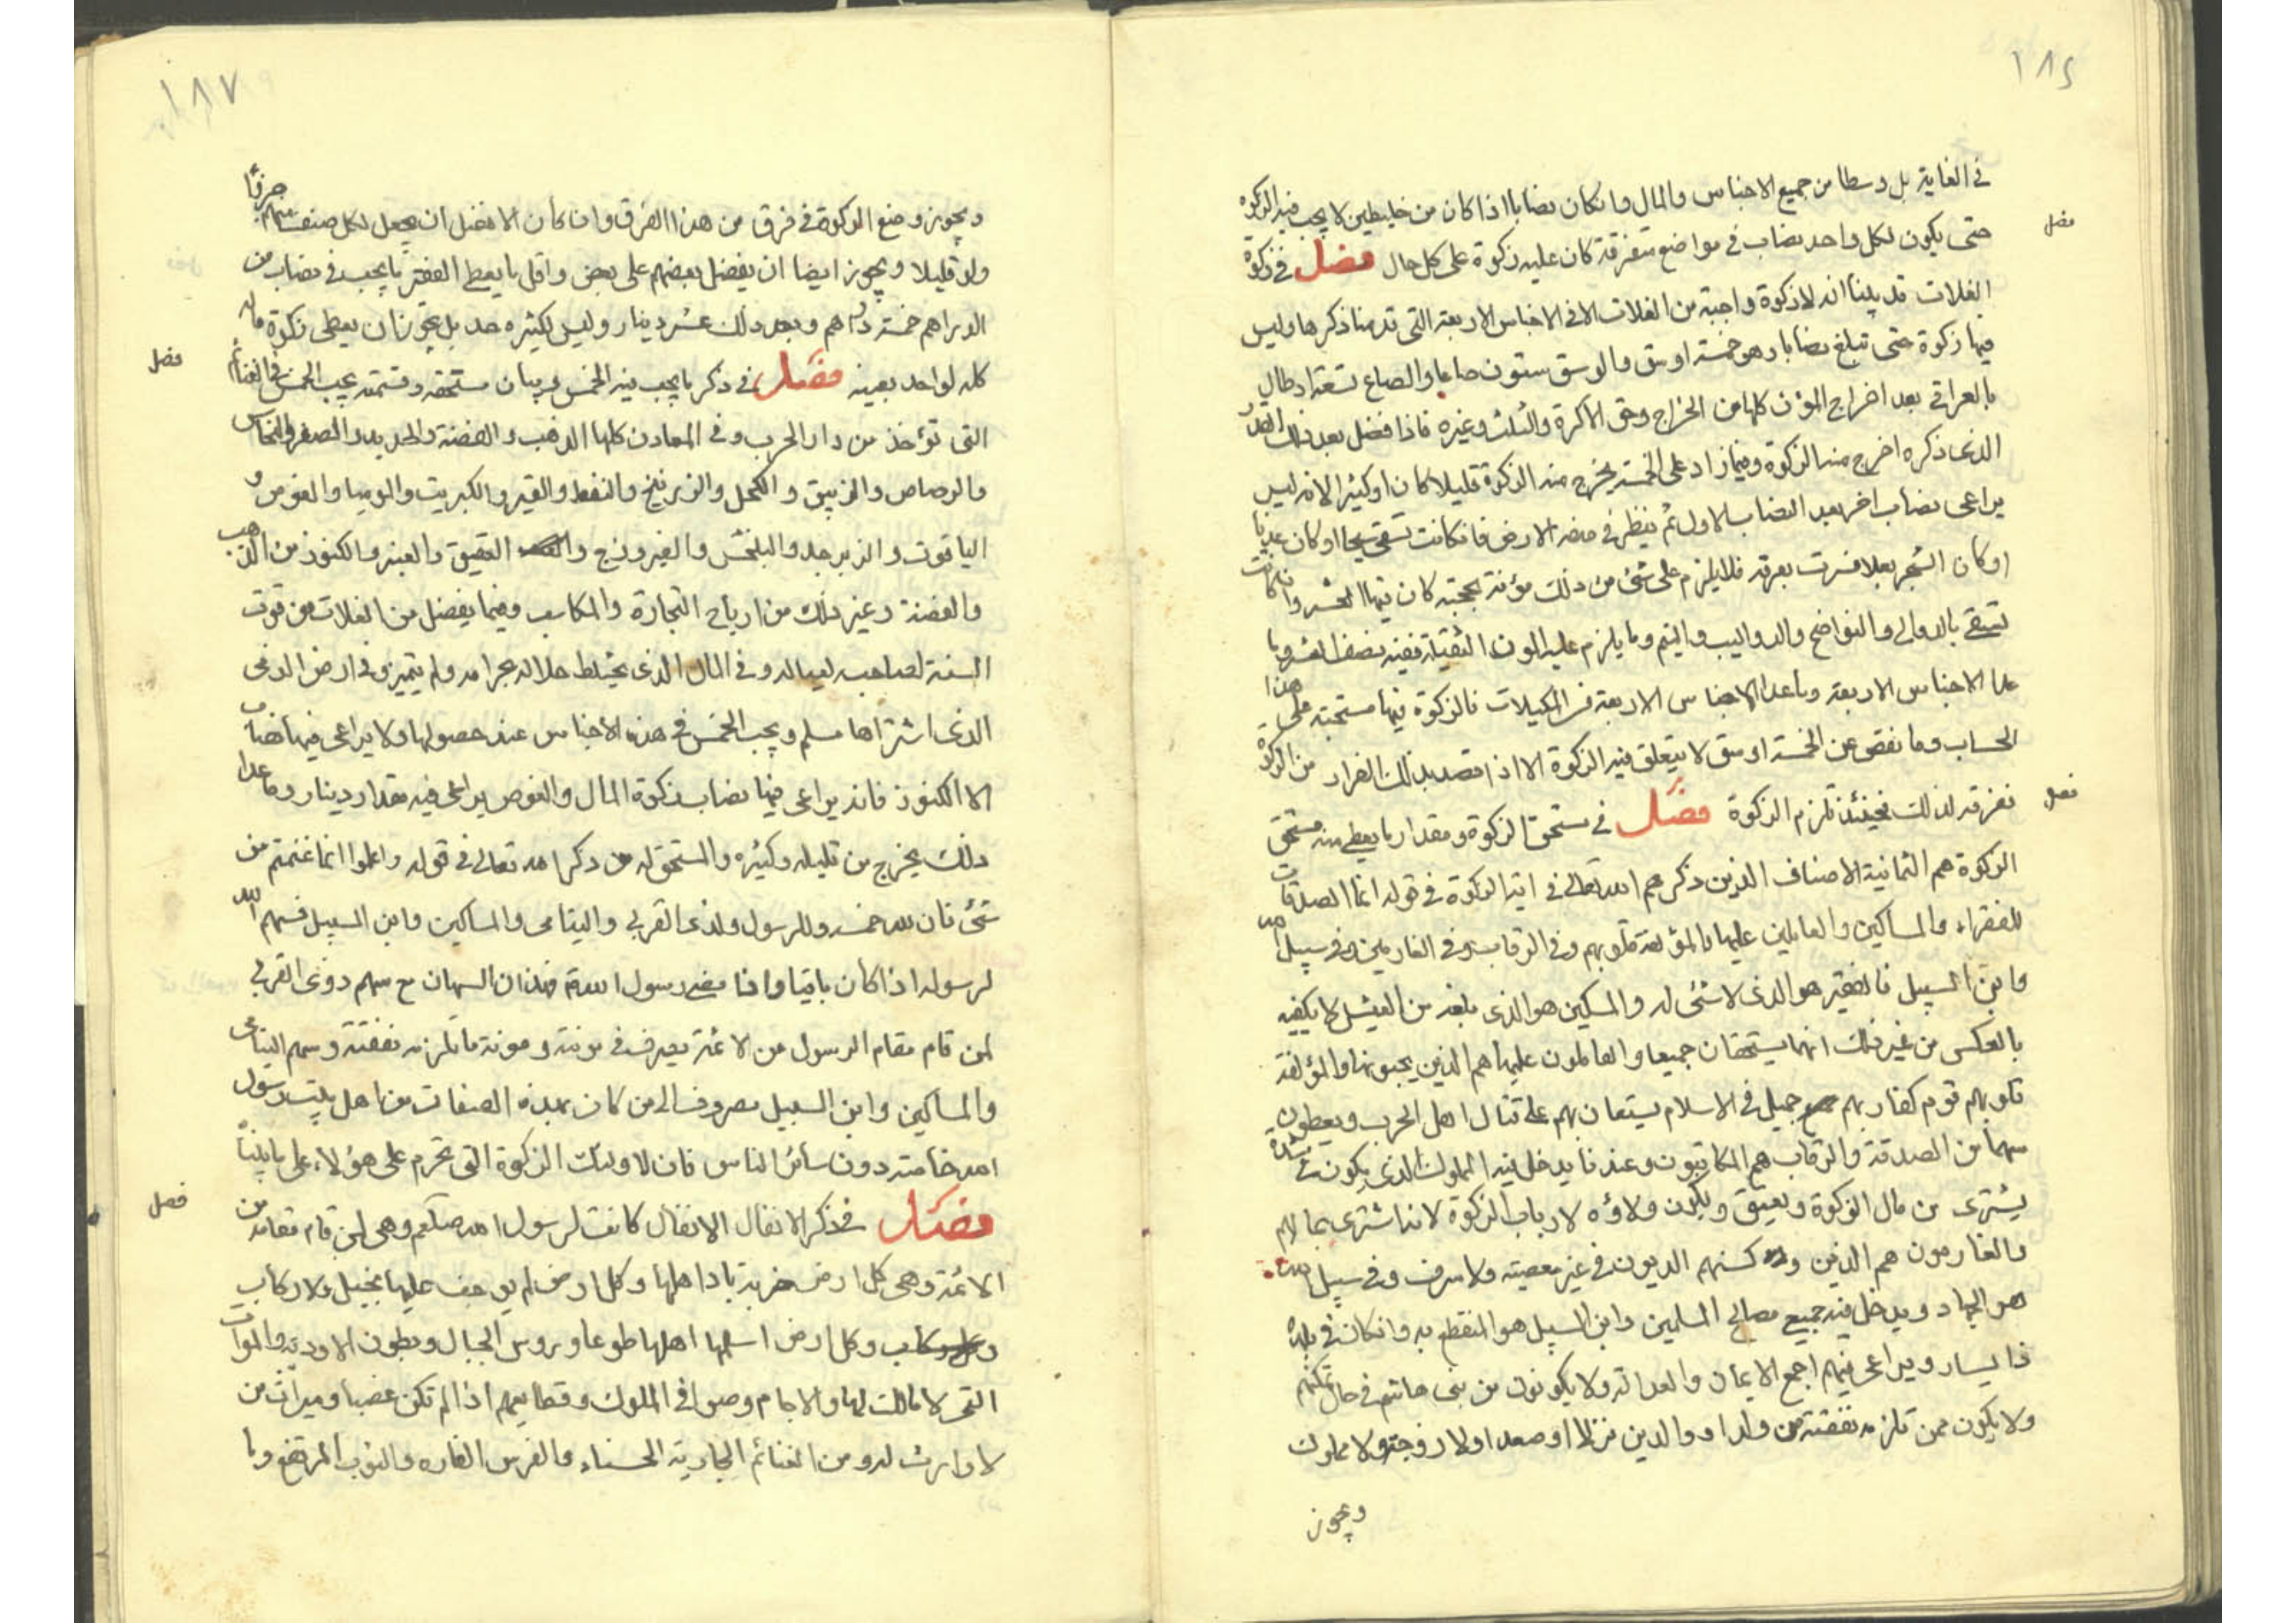 ١٨٤
في الغاية بل وسطا من جميع الاجناس والمال وان كان نصابا اذا كان من خليطين لا يجب فيه الزكوة
فصل
حتى يكون لكل واحد نصاب في مواضع متفرقة كان عليه زكوة على كل حال فصل في زكوة
الغلات قد بينا انه لا زكوة واجبة من الغلات الا في الاجناس الاربعة التي قدمنا ذكرها وليس
فيها زكوة حتى تبلغ نصابا وهو خمسة اوسق والوسق ستون صاعا والصاع تسعة ارطال
بالعراقي بعد اخراج المؤن كلها من الخراج وحق الاكرة والثلث وغيره فاذا فضل بعد ذلك القدر
الذي ذكره اخرج منه الزكوة وفيما زاد على الخمسة يخرج منه الزكوة قليلا كان او كثيرا لانه ليس
يراعى نصاب اخر بعد النصاب الاول ثم ينظر في هذه الارض فان كانت تسقى سيحا او كان عذيا
او كان الشجر بعلا فشرب بعرقه فلا يلزم على شئ من ذلك مؤنة مجحفة كان فيها العشر وان كانت
تسقى بالدوالي والنواضح والدواليب واليم وما يلزم عليه المون الثقيلة ففيه نصف العشر وما
عدا الاجناس الاربعة وما عدا الاجناس الاربعة من المكيلات فالزكوة فيها مستحبة على هذا
الحساب وما نقص عن الخمسة اوسق لا يتعلق فيه الزكوة الا اذا قصد بذلك الفرار من الزكوة
فصل
نفرقه لذلك فحينئذ تلزم الزكوة فصل في مستحق الزكوة ومقدار ما يعطى منه مستحق
الزكوة هم الثمانية الاصناف الذين ذكرهم الله تعالى في اية الزكوة في قوله انما الصدقات
للفقراء والمساكين والعاملين عليها والمؤلفة قلوبهم وفي الرقاب وفي الغارمين وفي سبيل الله
وابن السبيل فالفقير هو الذي لا شئ له والمسكين هو الذي بلغه من العيش لا يكفيه
بالعكس من غير ذلك انهما يستحقان جميعا والعاملون عليها هم الذين يجبونها والمؤلفة
قلوبهم قوم كفار بهم جميل في الاسلام يستعان بهم على قتال اهل الحرب ويعطون
سهما من الصدقة والرقاب هم المكاتبون وعندنا يدخل فيه المملوك الذي يكون في شدة
يشترى من مال الزكوة ويعتق ويكون ولاؤه لارباب الزكوة لانه اشترى بمالهم
والغارمون هم الذين ركبتهم الديون في غير معصية ولا سرف وفي سبيل الله
هو الجهاد ويدخل فيه جميع مصالح المسلمين وابن السبيل هو المنقطع به وان كان في بلده
ذا يسار ويراعى فيهم اجمع الايمان والعدالة ولا يكونون من بني هاشم في حال تمكنهم
ولا يكون ممن تلزمه نفقته من ولد او والدين نزلا او صعدا ولا زوجة ولا مملوك
ويجوز
١٨٧
ويجوز وضع الزكوة في فرق من هذا الفرق وان كان الافضل ان يجعل لكل صنف منهم جزءًا
ولو قليلا ويجوز ايضا ان يفضل بعضهم على بعض واقل ما يعطى الفقير ما يجب في نصاب من
الدراهم خمسة دراهم وبعد ذلك عشر دينار وليس لكثيره حد بل يجوز ان يعطى زكوة ماله
فصل
كله لواحد بعينه فصل في ذكر ما يجب فيه الخمس وبيان مستحقه وقسمته يجب الخمس في الغنائم
التي تؤخذ من دار الحرب وفي المعادن كلها الذهب والفضة والحديد والصفر والنحاس
والرصاص والزيبق والكحل والزرنيخ والنفط والقير والكبريت والموميا والغوص و
الياقوت والزبرجد والبلخش والفيروزج والعقيق والعنبر والكنوز من الذهب
والفضة وغير ذلك من ارباح التجارة والمكاسب وفيما يفضل من الغلات من قوت
السنة لصاحبه لعياله وفي المال الذي يختلط حلاله بحرامه ولم يتميز وفي ارض الذمي
الذي اشتراها مسلم ويجب الخمس في هذه الاجناس عند حصولها ولا يراعى فيها نصاب
الا الكنوز فانه يراعى فيها نصاب زكوة المال والغوص يراعى فيه مقدار دينار وما عدا
ذلك يخرج من قليله وكثيره والمستحق له من ذكر الله تعالى في قوله واعلموا انما غنمتم من
شئ فان لله خمسه وللرسول ولذي القربى واليتامى والمساكين وابن السبيل فسهم الله
لرسوله اذا كان باقيا واذا مضى رسول الله فهذان السهمان مع سهم ذوي القربى
لمن قام مقام الرسول من الائمة يصرف في مونته ومونة ما تلزمه نفقته وسهم اليتامى
والمساكين وابن السبيل مصروف الى من كان بهذه الصفات من اهل بيت رسول
الله خاصة دون سائر الناس فان لاولئك الزكوة التي تحرم على هؤلاء على ما بيناه
فصل
فصل في ذكر الانفال الانفال كانت لرسول الله صلعم وهي لمن قام مقامه من
الائمة وهي كل ارض خربة باد اهلها وكل ارض لم يوجف عليها بخيل ولا ركاب
وكل ارض اسلمها اهلها طوعا وروس الجبال وبطون الاودية والموات
التي لا مالك لها والاجام وصوافي الملوك وقطايعهم اذا لم تكن غصبا وميراث من
لا وارث له ومن الغنائم الجارية الحسناء والفرس الفاره والثوب المرتفع وما